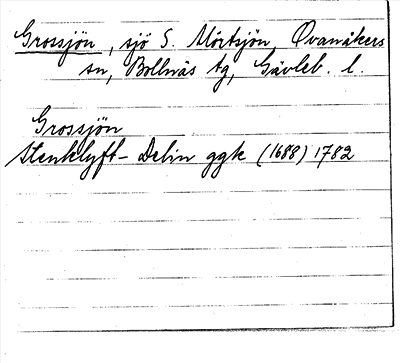 Grossjön, sjö S. Mörtsjön, Ovanåkers
sn, Bollnäs tg, Gävleb. l.
Grossjön
Stenklyft-Delin ggk (1688) 1782